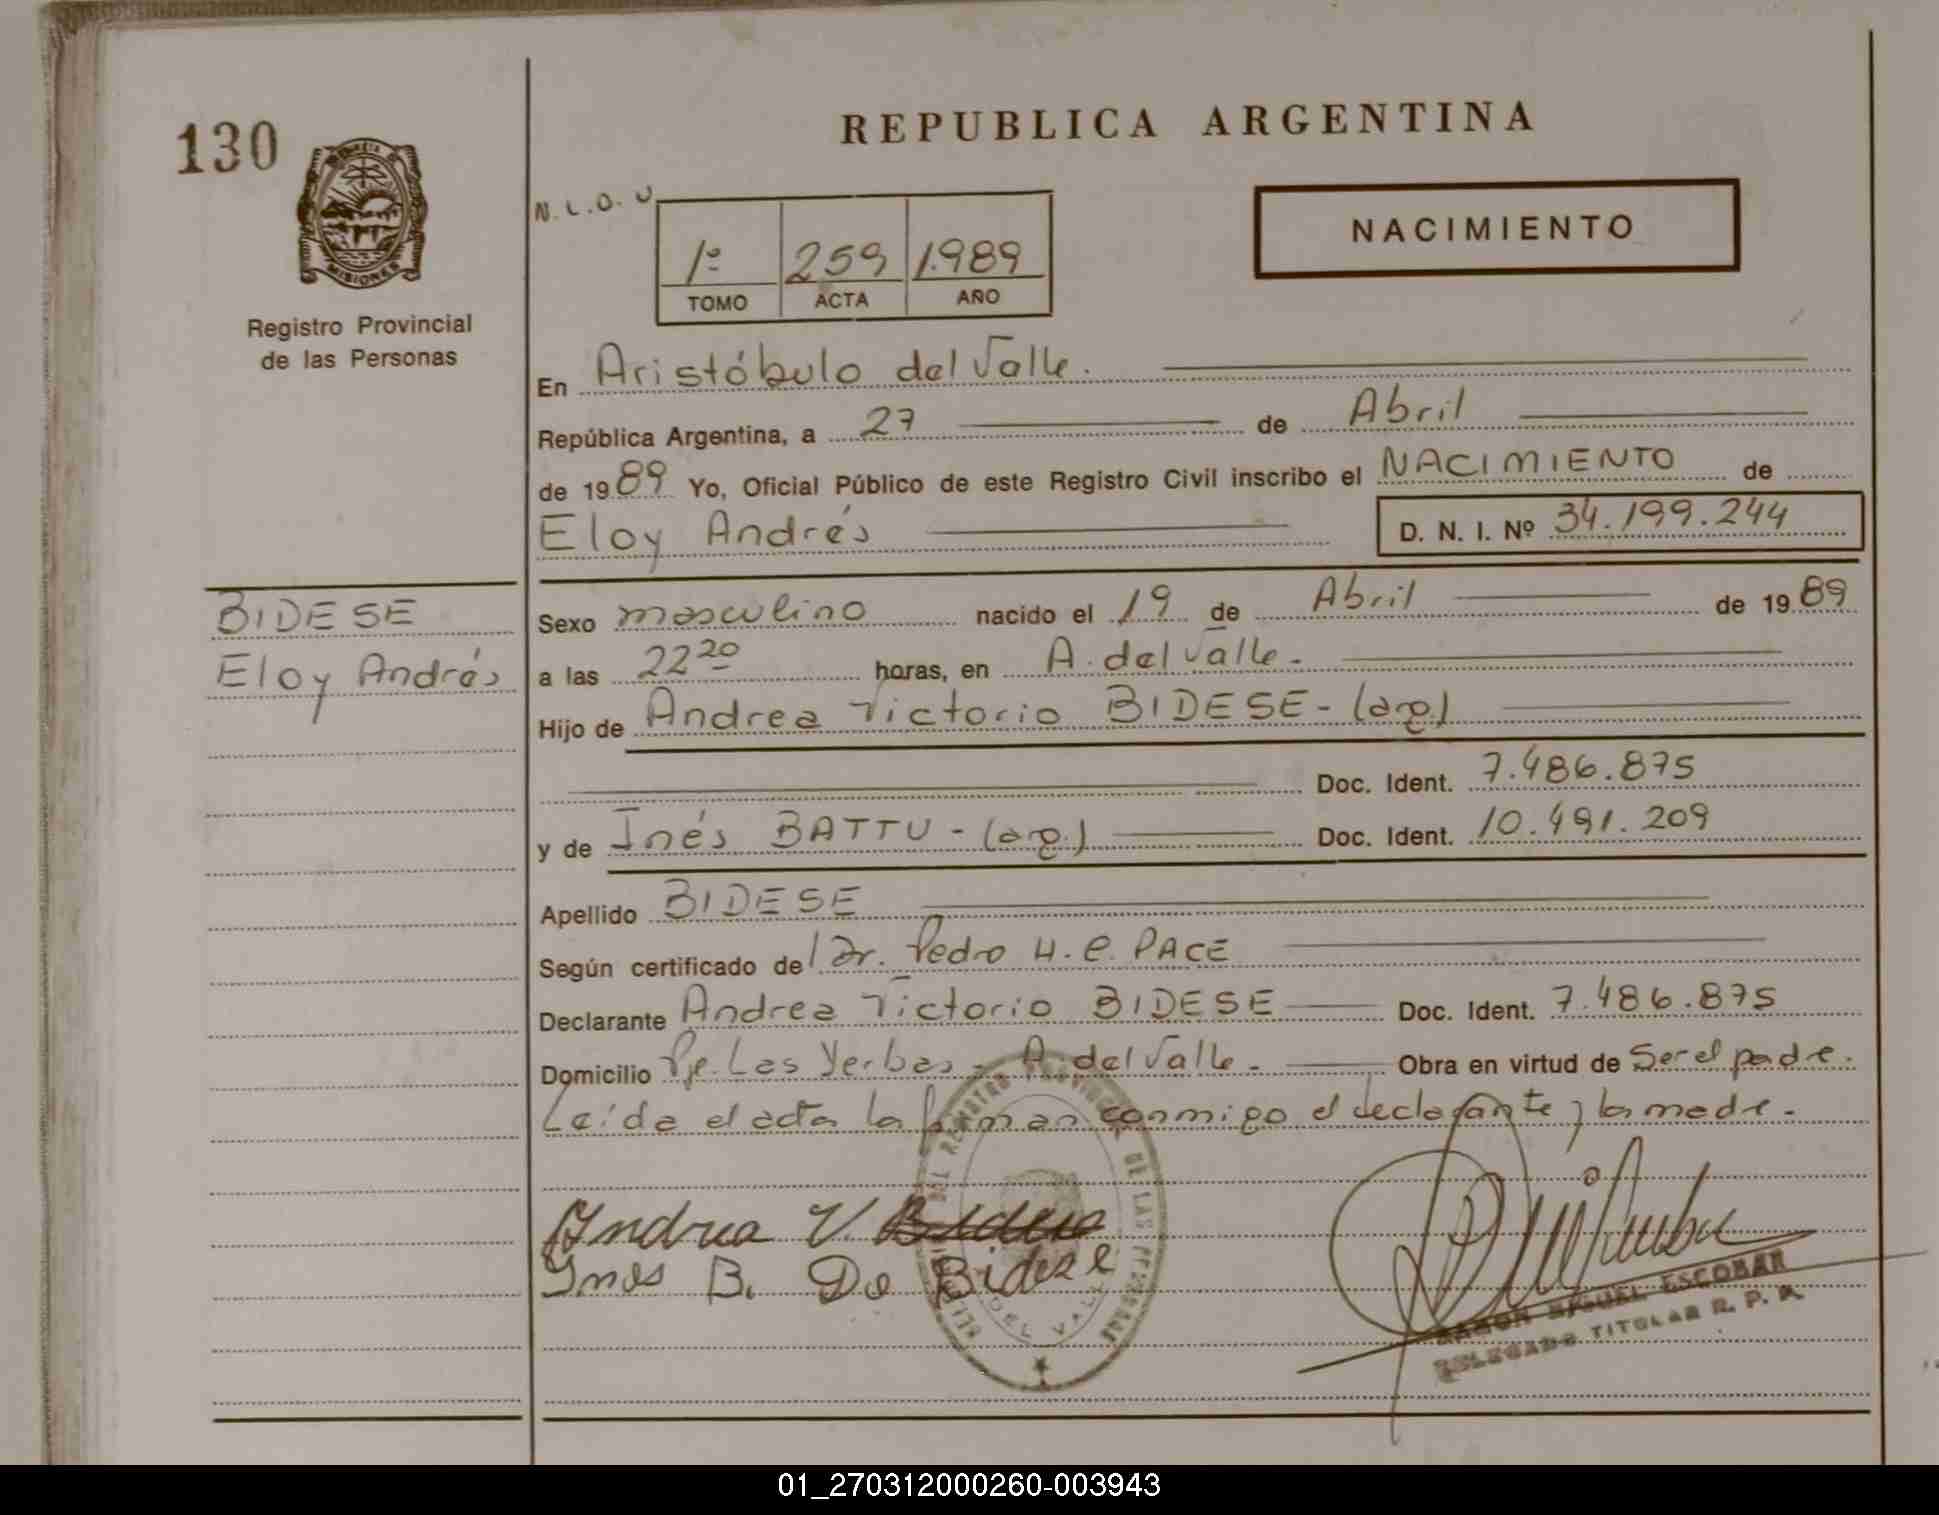 130
MISIONES
Registro Provincial
de las Personas
REPUBLICA ARGENTINA
N.L.O.U
1º 259 1.989
TOMO ACTA AÑO
NACIMIENTO
En Aristóbulo del Valle.
República Argentina, a 27 de Abril
de 1989 Yo, Oficial Público de este Registro Civil inscribo el NACIMIENTO de
Eloy Andrés D. N. I. Nº 34.199.244
BIDESE
Eloy Andrés
Sexo masculino nacido el 19 de Abril de 1989
a las 22 20 horas, en A. del Valle -
Hijo de Andrea Victorio BIDESE - (arg.)
Doc. Ident. 7.486.875
y de Inés BATTU - (arg.) Doc. Ident. 10.491.209
Apellido BIDESE
Según certificado del Dr. Pedro H. C. PACE
Declarante Andrea Victorio BIDESE Doc. Ident. 7.486.875
Domicilio Pje. Las Yerbas - A. del Valle - Obra en virtud de Ser el padre.
Leída el acta la firman conmigo el declarante y la madre -
Andrea V. Bidese
Ynes B. De Bidese
DEL REGISTRO PROVINCIAL DE LAS PERSONAS
DEL VALLE
RAMON MIGUEL ESCOBAR
DELEGADO TITULAR R. P. P.
01_270312000260-003943